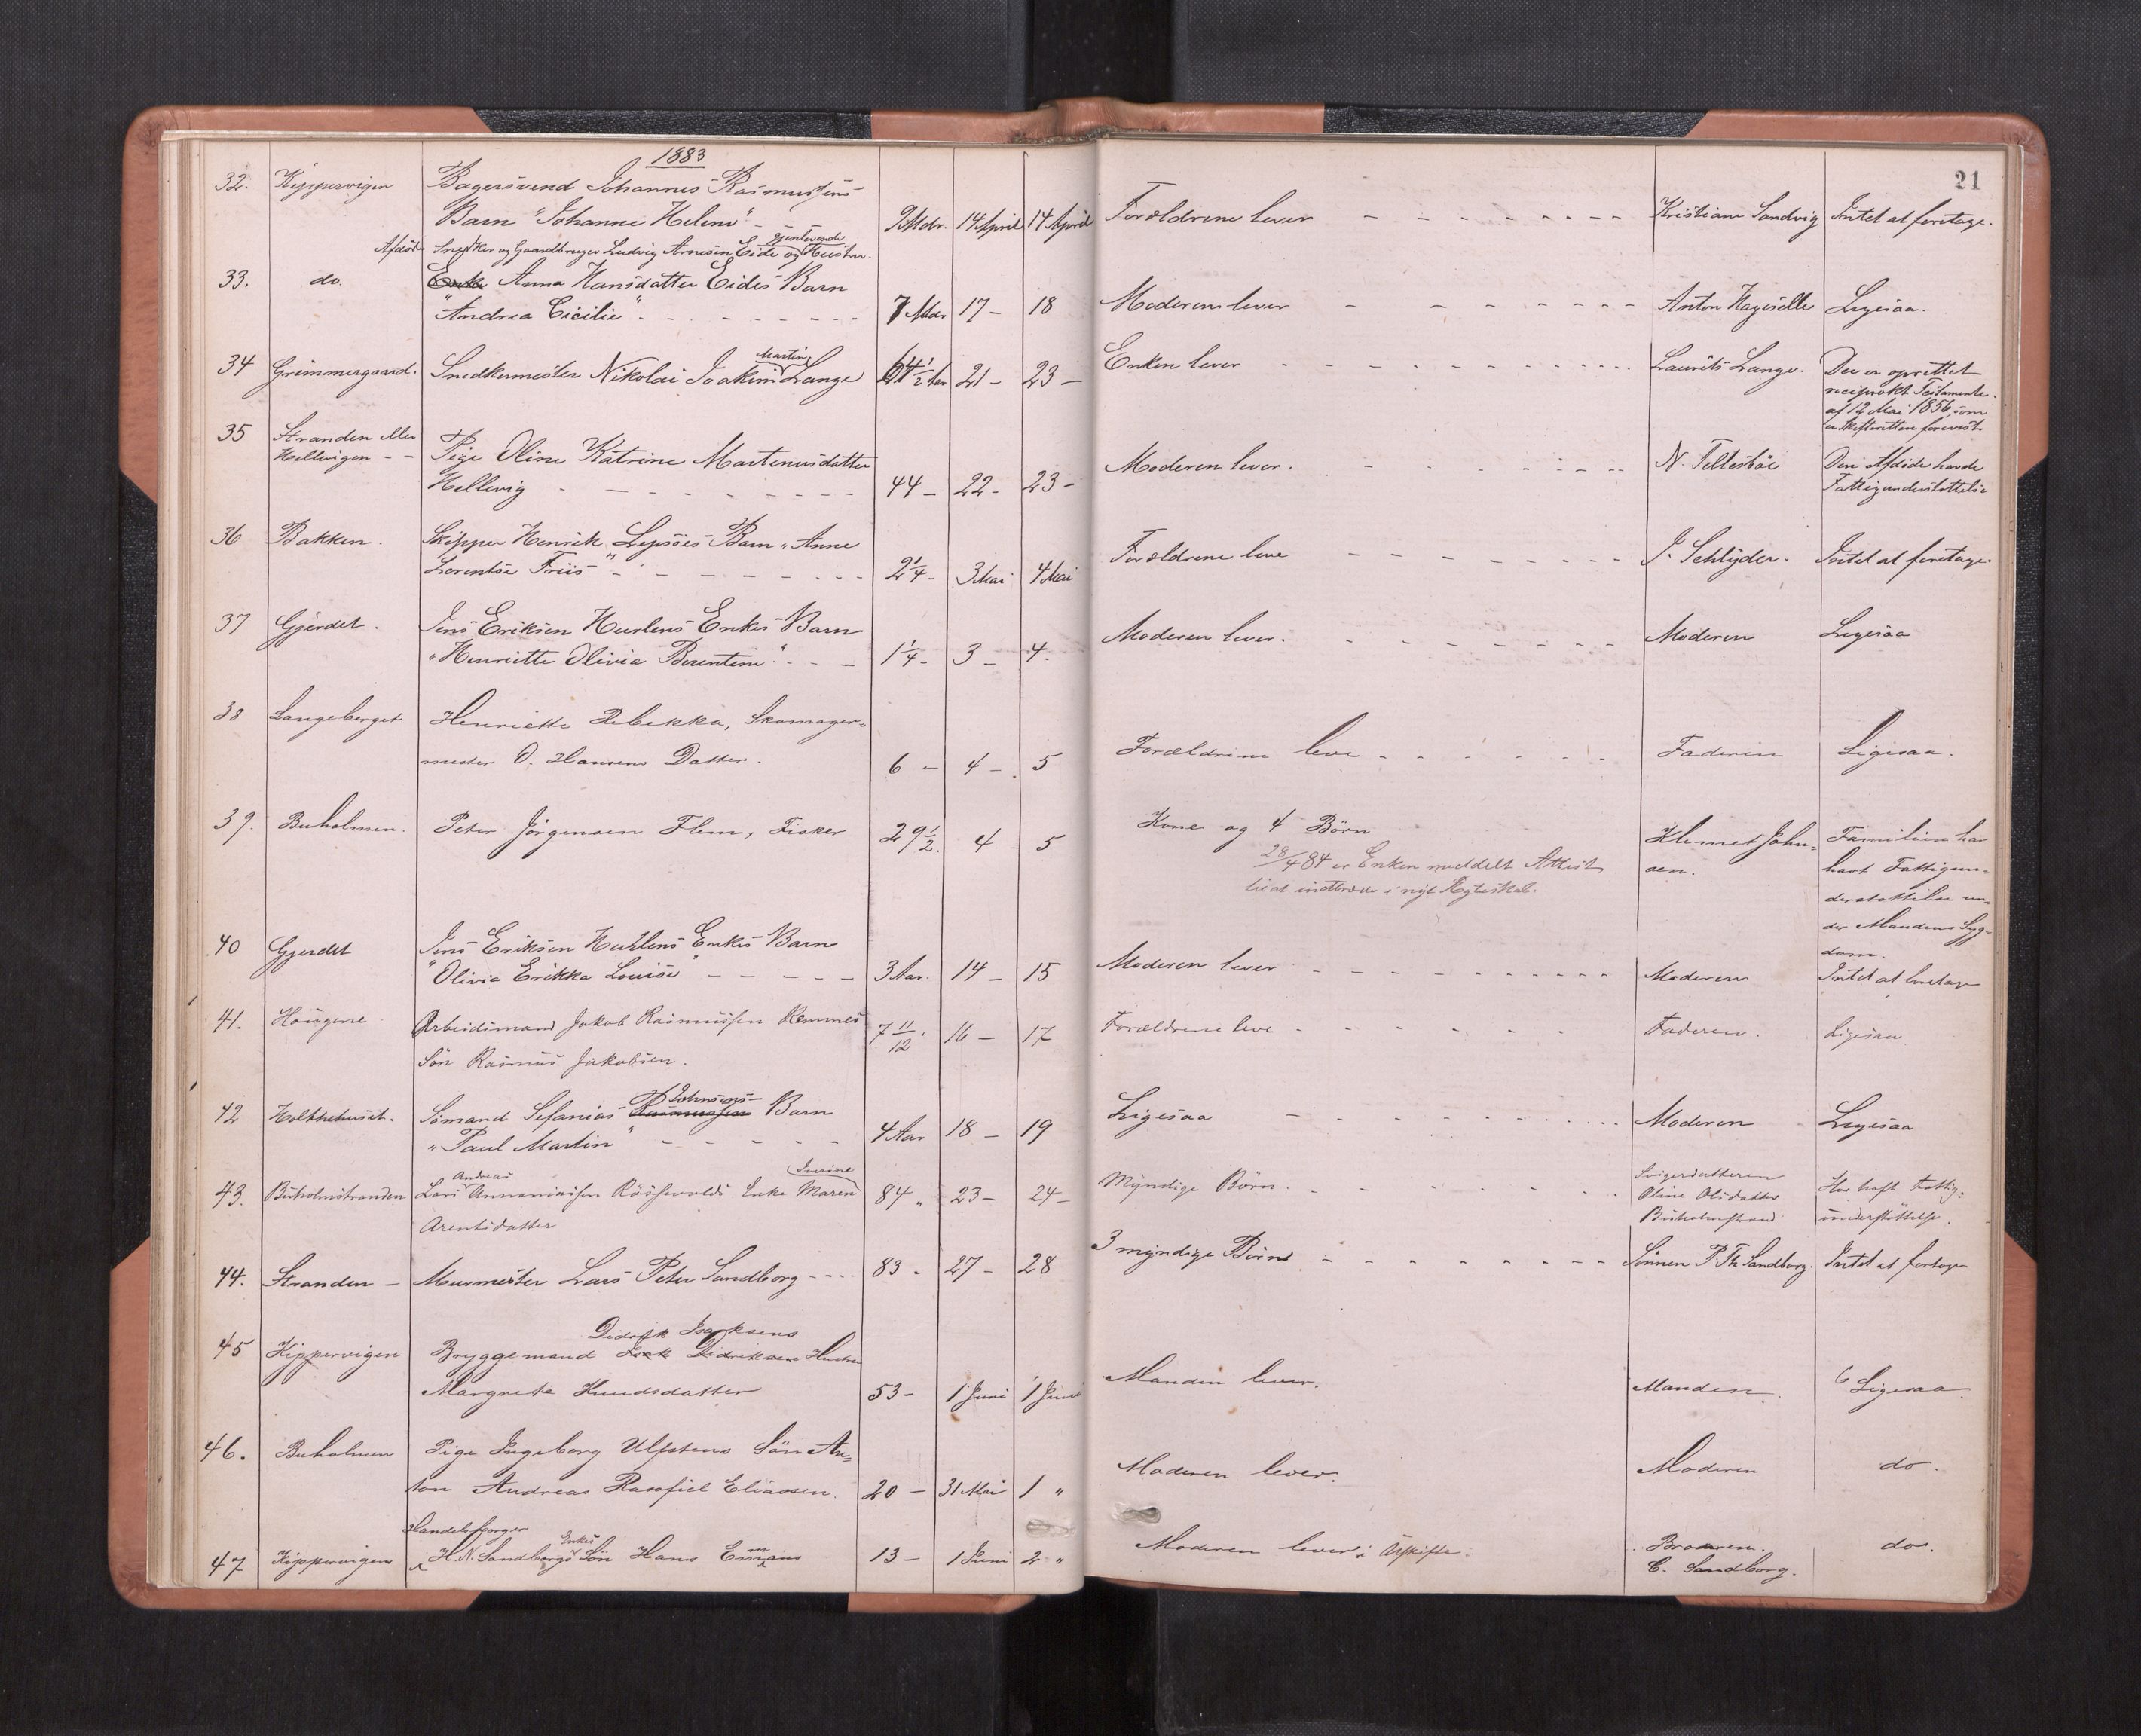 1883
21
32. Kippervigen Bagersvend Johannes Rasmussens
Barn "Johanne Helene" - 9 Mdr. 14 April 14 April Forældrene lever - - - Kristiane Sandvig Intet at foretage.
Afdøde Snedker og Gaardbruger Ludvig Arnesen Eide og gjenlevende Hustru
33. do. Enke Anna Hansdatter Eides Barn
"Andrea Cicilie" - - - 7 Mdr 17 - 18 Moderen lever - - - Anton Ligesaa.
34 Grimmergaard. Snedkermester Nikolai Joakim Martin Lange 64 1/2 Aar 21 - 23 - Enken lever - - - Laurits Lange. Der er oprettet
reciprokt Testamente
af 12 Mai 1856, som
er Skifteretten forevist
35 Stranden eller
Hellevigen - - Pige Oline Katrine Martinusdatter
Hellevig - - - 44 - 22 - 23 - Moderen lever. - - - N. Tellesbøe Den Afdøde havde
Fattigunderstøttelse
36 Bakken. Skipper Henrik Lepsøes Barn "Anne
Lorentse Friis" - - - 2 1/4 - 3 Mai 4 Mai Forældrene leve - - - J. Schlyder. Intet at foretage.
37 Gjerdet. Jens Eriksen Huslens Enkes Barn
"Henriette Olivia Berentine" - - - 1 1/4 - 3 - 4. Moderen lever. - - - Moderen Ligesaa
38 Langeberget Henriette Rebekka, Skomager-
mester O. Hansens Datter. 6 - 4 - 5 Forældrene leve - - - Faderen Ligesaa.
39. Buholmen. Peter Jörgensen Flem, Fisker 29 1/2. 4 5 Kone og 4 Börn Klemet John-
sen. Familien har
havt Fattigun-
derstøttelse un-
der Mandens Syg-
dom.
28/4 84 er Enken meddelt Attest
til at indtræde i nyt Ægteskab.
40 Gjerdet Jens Eriksen Huslens Enkes Barn
"Olivia Erikka Louise" - - - 3 Aar. 14 - 15 Moderen lever - - - Moderen Intet at foretage
41. Haugene Arbeidsmand Jakob Rasmussen Remmes
Sön Rasmus Jakobsen. 7 11/12. 16 - 17 Forældrene leve - - - Faderen. Ligesaa
42 Holkehuset. Sömand Sefanias Rasmussen Johnsens Barn
"Paul Martin" - - - 4 Aar 18 - 19 Ligesaa - - - Moderen Ligesaa
43. Buholmstranden Lars Andreas Annaniassen Rössevolds Enke Maren Iverine
Arentsdatter 84 " 23 - 24 - Myndige Börn. - - - Svigerdatteren
Oline Olsdatter
Buholmstrand Har haft Fattig-
understöttelse.
44. Stranden - Murmester Lars Peter Sandborg - - - 83 - 27 - 28 3 myndige Börn - - - Sönnen P. Th. Sandborg. Intet at foretage
45 Kippervigen Bryggemand Isak Didriksens Didrik Isaksens Hustru
Margrete Knudsdatter 53 - 1 Juni 1 Juni Manden lever. Manden Ligesaa
46. Buholmen Pige Ingeborg Ulfstens Sön An-
ton Andreas Rasofiel Eliassen. 20 - 31 Mai 1 " Moderen lever. Moderen do.
Handelsborger
47 Kippervigen H. N. Sandborgs Enkes Sön Hans Emmans 13 - 1 Juni 2 " Moderen lever i Uskifte. Broderen do.
C. Sandborg.